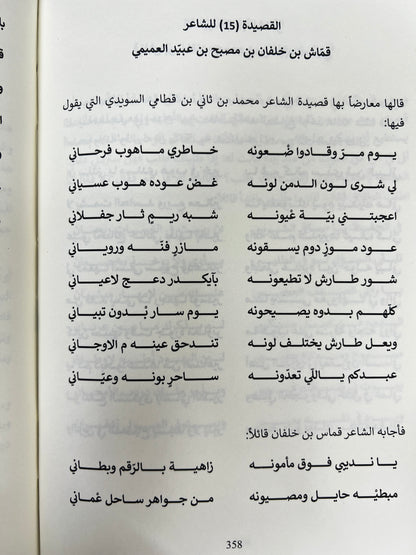 القصيدة (15) للشاعر
قمّاش بن خلفان بن مصبح بن عبيّد العميمي
قالها معارضاً بها قصيدة الشاعر محمد بن ثاني بن قطامي السويدي التي يقول
فيها:
يـوم مـرّ وقـادوا ضْعونه خـاطري مـاهوب فرحاني
لي شرى لـون الدمن لونه غضّ عوده هوب عسياني
اعجبتـني بيّـة عْيونـه شبه ريـم ثـار جفلاني
عـود مـوز دوم يسـقونه مـازر فنّـه ورويـاني
شور طـارش لا تطيعونه بآيكـدر دعـج لاعيـاني
كلّهـم بـدوه يصـيحونه يـوم سـار بْـدون تبيـاني
ويعل طـارش يختلف لونه تندحق عينـه م الاوجـاني
عبدكـم ياللي تعدّونـه سـاحر بونـه وعيّـاني
فأجابه الشاعر قماس بن خلفان قائلاً:
يـا نديبي فـوق مأمونـه زاهيـة بـالرّقم وبطـاني
مبطيّه حايـل ومصـيونه مـن جواهر ساحل عْماني
358